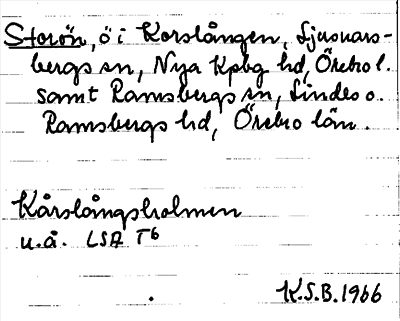 Storön, ö i Korslången, Ljusnars-
bergs sn, Nya Kpbg hd, Örebro l.
samt Ramsbergs sn, Lindes o.
Ramsbergs hd, Örebro län.
Kårslångsholmen
u.å. LSA T6
K.S.B. 1966